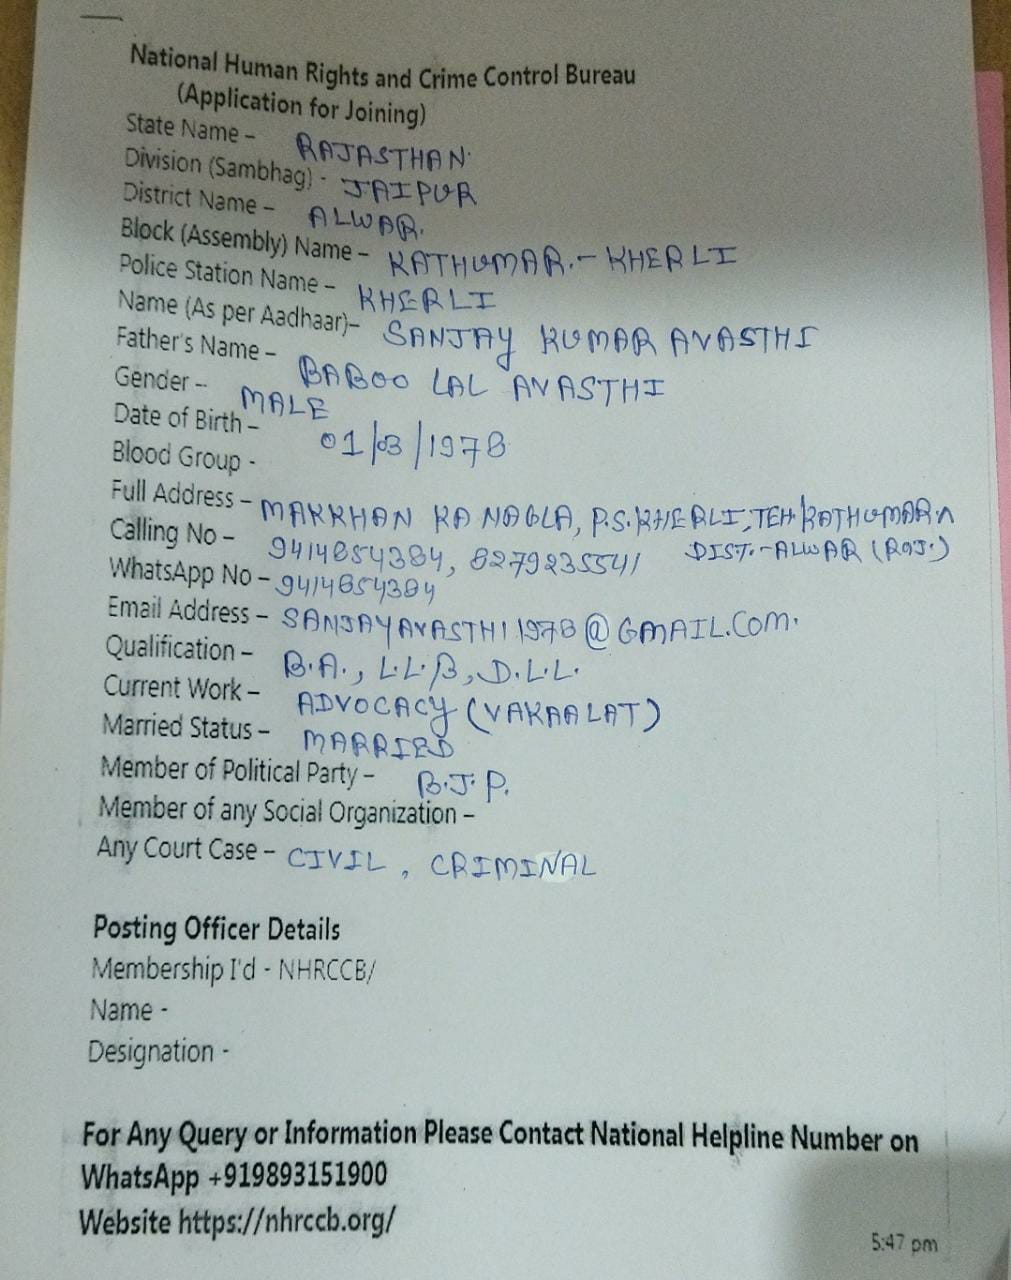 National Human Rights and Crime Control Bureau
(Application for Joining)
State Name - RAJASTHAN
Division (Sambhag) - JAIPUR
District Name - ALWAR.
Block (Assembly) Name - KATHUMAR.- KHERLI
Police Station Name - KHERLI
Name (As per Aadhaar)- SANJAY KUMAR AVASTHI
Father's Name - BABOO LAL AVASTHI
Gender -- MALE
Date of Birth - 01/03/1978
Blood Group -
Full Address - MAKKHAN KA NAGLA, P.S. KHERLI, TEH. KATHUMAR
DIST.-ALWAR (RAJ.)
Calling No - 9414854384, 8279235541
WhatsApp No - 9414854384
Email Address - SANJAYAVASTHI1978@GMAIL.COM.
Qualification - B.A., L.L.B, D.L.L.
Current Work - ADVOCACY (VAKAALAT)
Married Status - MARRIED
Member of Political Party - B.J.P.
Member of any Social Organization -
Any Court Case - CIVIL, CRIMINAL
Posting Officer Details
Membership I'd - NHRCCB/
Name -
Designation -
For Any Query or Information Please Contact National Helpline Number on
WhatsApp +919893151900
Website https://nhrccb.org/
5:47 pm